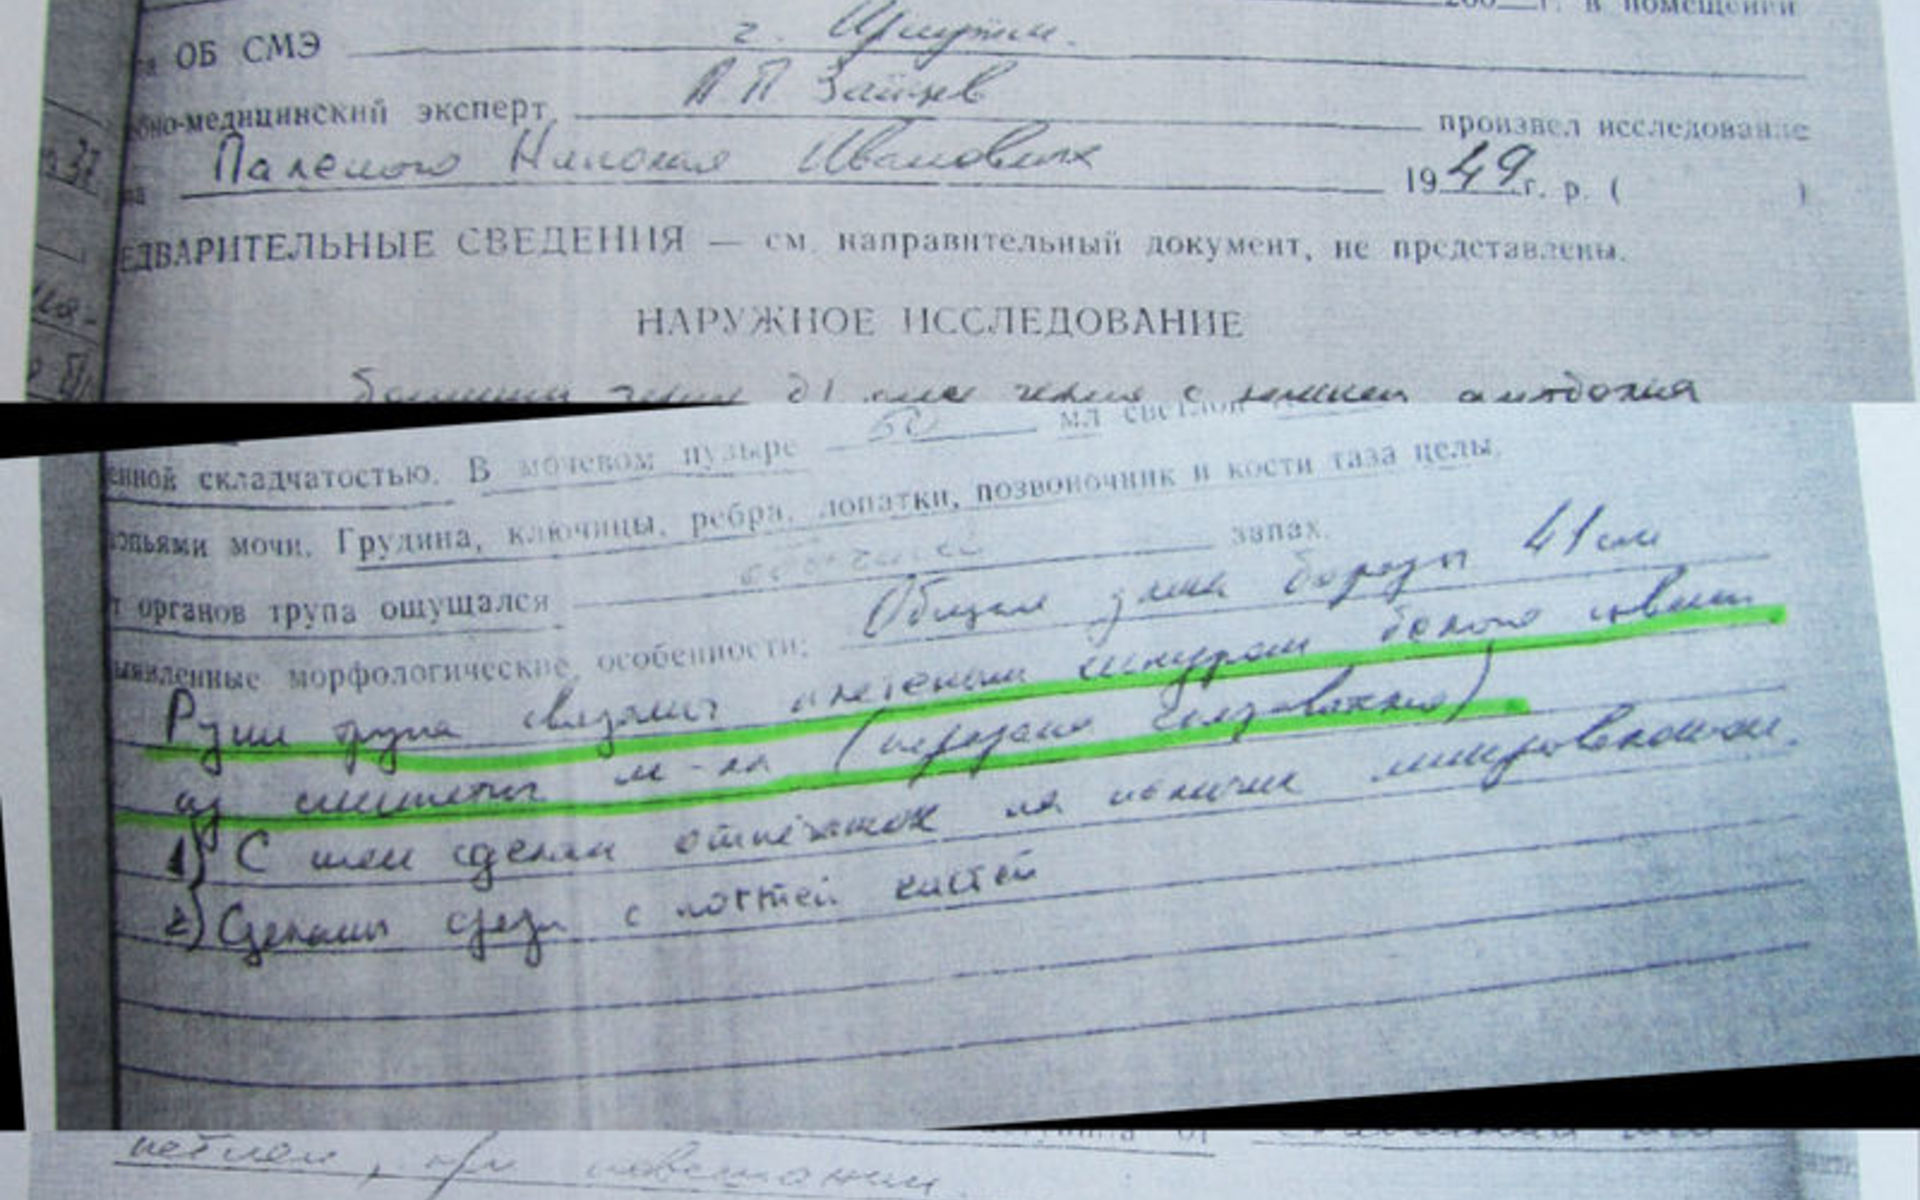 200 г. в помещении
ОБ СМЭ г. Иркутск.
бно-медицинский эксперт А П Зайцев произвел исследование
на Паленого Николая Ивановича 1949 г. р. ( )
ЕДВАРИТЕЛЬНЫЕ СВЕДЕНИЯ — см. направительный документ, не представлены.
НАРУЖНОЕ ИССЛЕДОВАНИЕ
с
енной складчатостью. В мочевом пузыре 50 мл светлой
опьями мочи. Грудина, ключицы, ребра, лопатки, позвоночник и кости таза целы.
т органов трупа ощущался запах.
ыявленные морфологические особенности: Общая длина борозды 41 см
Руки трупа связаны плетеным шнуром белого цвета
из синтетич м-ла (передано следователю)
1) С шеи сделан отпечаток на наличие микроволокон.
2) Сделаны срезы с ногтей кистей
петлей, при повешении